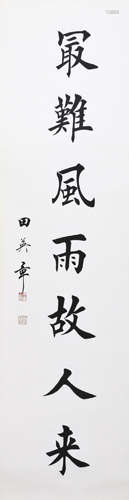 冣難風雨故人来
田英章